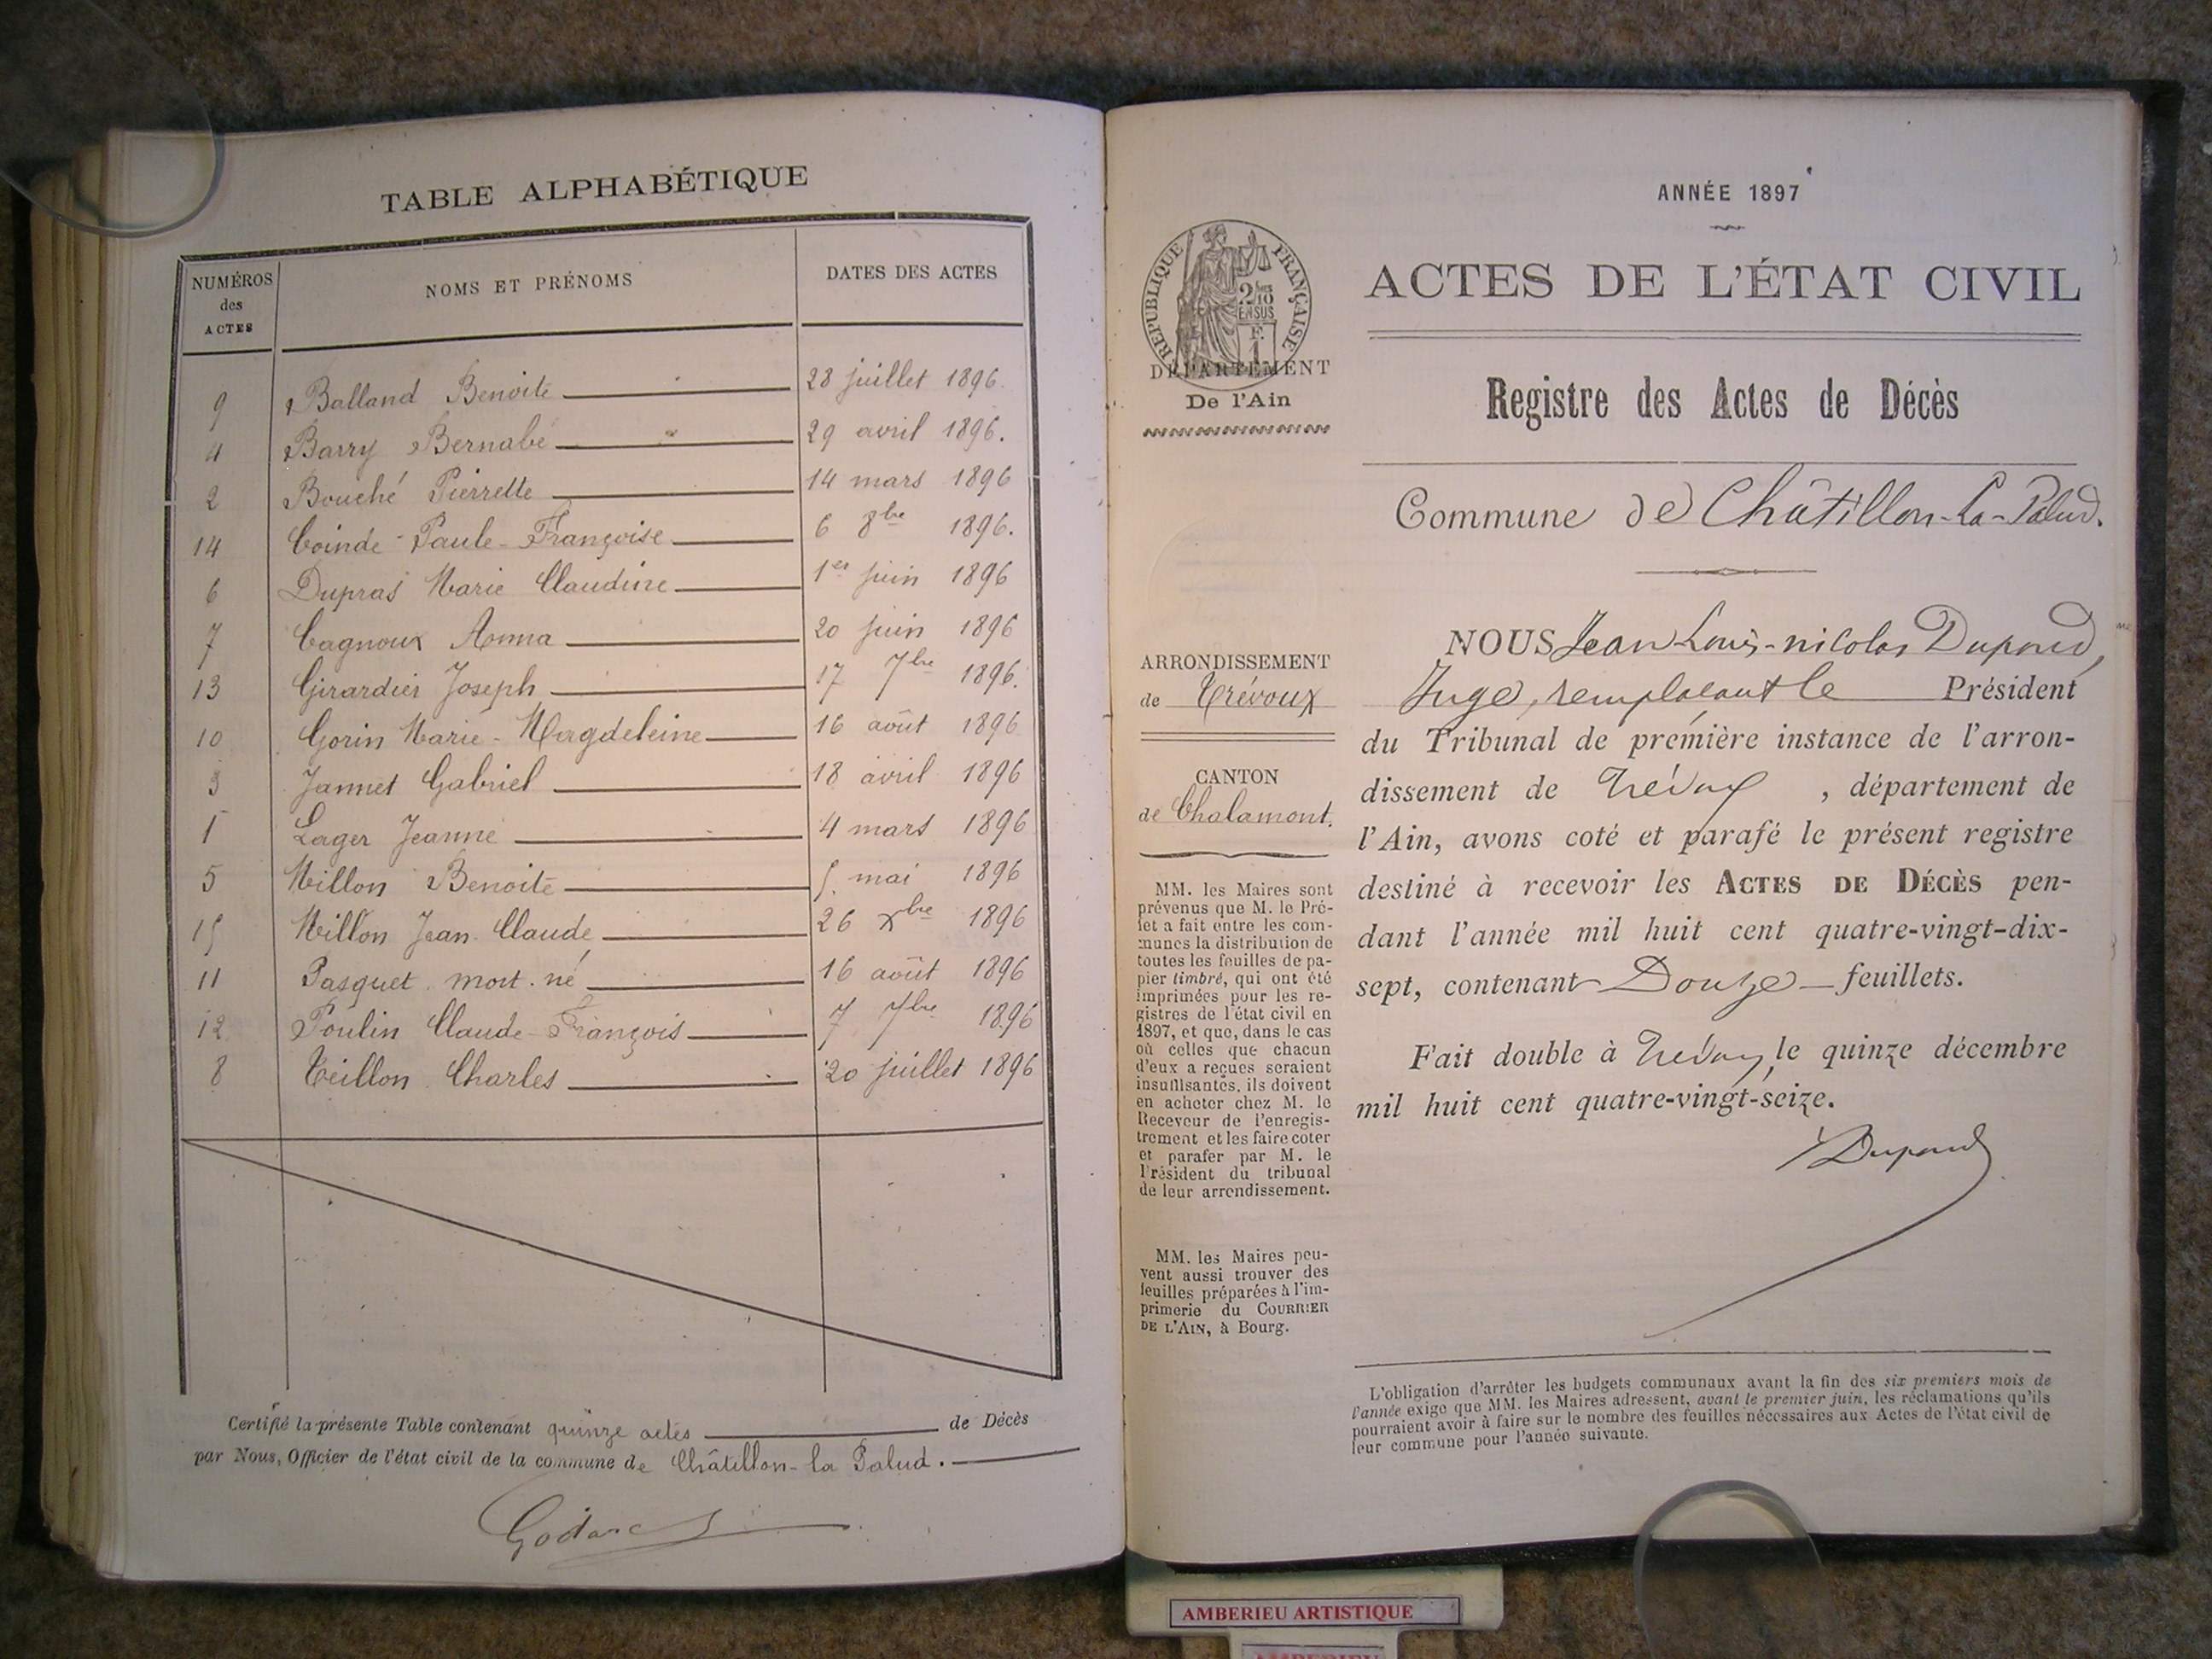 TABLE ALPHABÉTIQUE
NUMÉROS des ACTES NOMS ET PRÉNOMS DATES DES ACTES
9 Balland Benoite 28 juillet 1896.
4 Barry Bernabé 29 avril 1896.
2 Bouché Pierrette 14 mars 1896
14 Coinde Paule-Françoise 6 8bre 1896.
6 Dupras Marie Claudine 1er juin 1896
7 Cagnoux Anna 20 juin 1896
13 Girardier Joseph 17 7bre 1896.
10 Gorin Marie-Magdeleine 16 août 1896
3 Jannet Gabriel 18 avril 1896
1 Lager Jeanne 4 mars 1896
5 Millon Benoite 5 mai 1896
15 Millon Jean Claude 26 Xbre 1896
11 Pasquet mort-né 16 août 1896
12 Poulin Claude-François 7 7bre 1896
8 Teillon Charles 20 juillet 1896
Certifié la présente Table contenant quinze actes de Décès
par Nous, Officier de l'état civil de la commune de Châtillon-la Palud.
Godard
ANNÉE 1897
RÉPUBLIQUE FRANÇAISE
2/10 EN SUS
F. 1
ACTES DE L'ÉTAT CIVIL
DÉPARTEMENT
De l'Ain
Registre des Actes de Décès
Commune de Châtillon-La-Palud.
ARRONDISSEMENT
de Trévoux
CANTON
de Chalamont.
MM. les Maires sont
prévenus que M. le Pré-
fet a fait entre les com-
munes la distribution de
toutes les feuilles de pa-
pier timbré, qui ont été
imprimées pour les re-
gistres de l'état civil en
1897, et que, dans le cas
où celles que chacun
d'eux a reçues seraient
insuffisantes, ils doivent
en acheter chez M. le
Receveur de l'enregis-
trement et les faire coter
et parafer par M. le
Président du tribunal
de leur arrondissement.
MM. les Maires peu-
vent aussi trouver des
feuilles préparées à l'im-
primerie du COURRIER
DE L'AIN, à Bourg.
NOUS Jean-Louis-nicolas Dupond,
Juge, remplaçant le Président
du Tribunal de première instance de l'arron-
dissement de Trévoux, département de
l'Ain, avons coté et parafé le présent registre
destiné à recevoir les ACTES DE DÉCÈS pen-
dant l'année mil huit cent quatre-vingt-dix-
sept, contenant Douze feuillets.
Fait double à Trévoux, le quinze décembre
mil huit cent quatre-vingt-seize.
Dupond
L'obligation d'arrêter les budgets communaux avant la fin des six premiers mois de
l'année exige que MM. les Maires adressent, avant le premier juin, les réclamations qu'ils
pourraient avoir à faire sur le nombre des feuilles nécessaires aux Actes de l'état civil de
leur commune pour l'année suivante.
AMBERIEU ARTISTIQUE
AMBERIEU